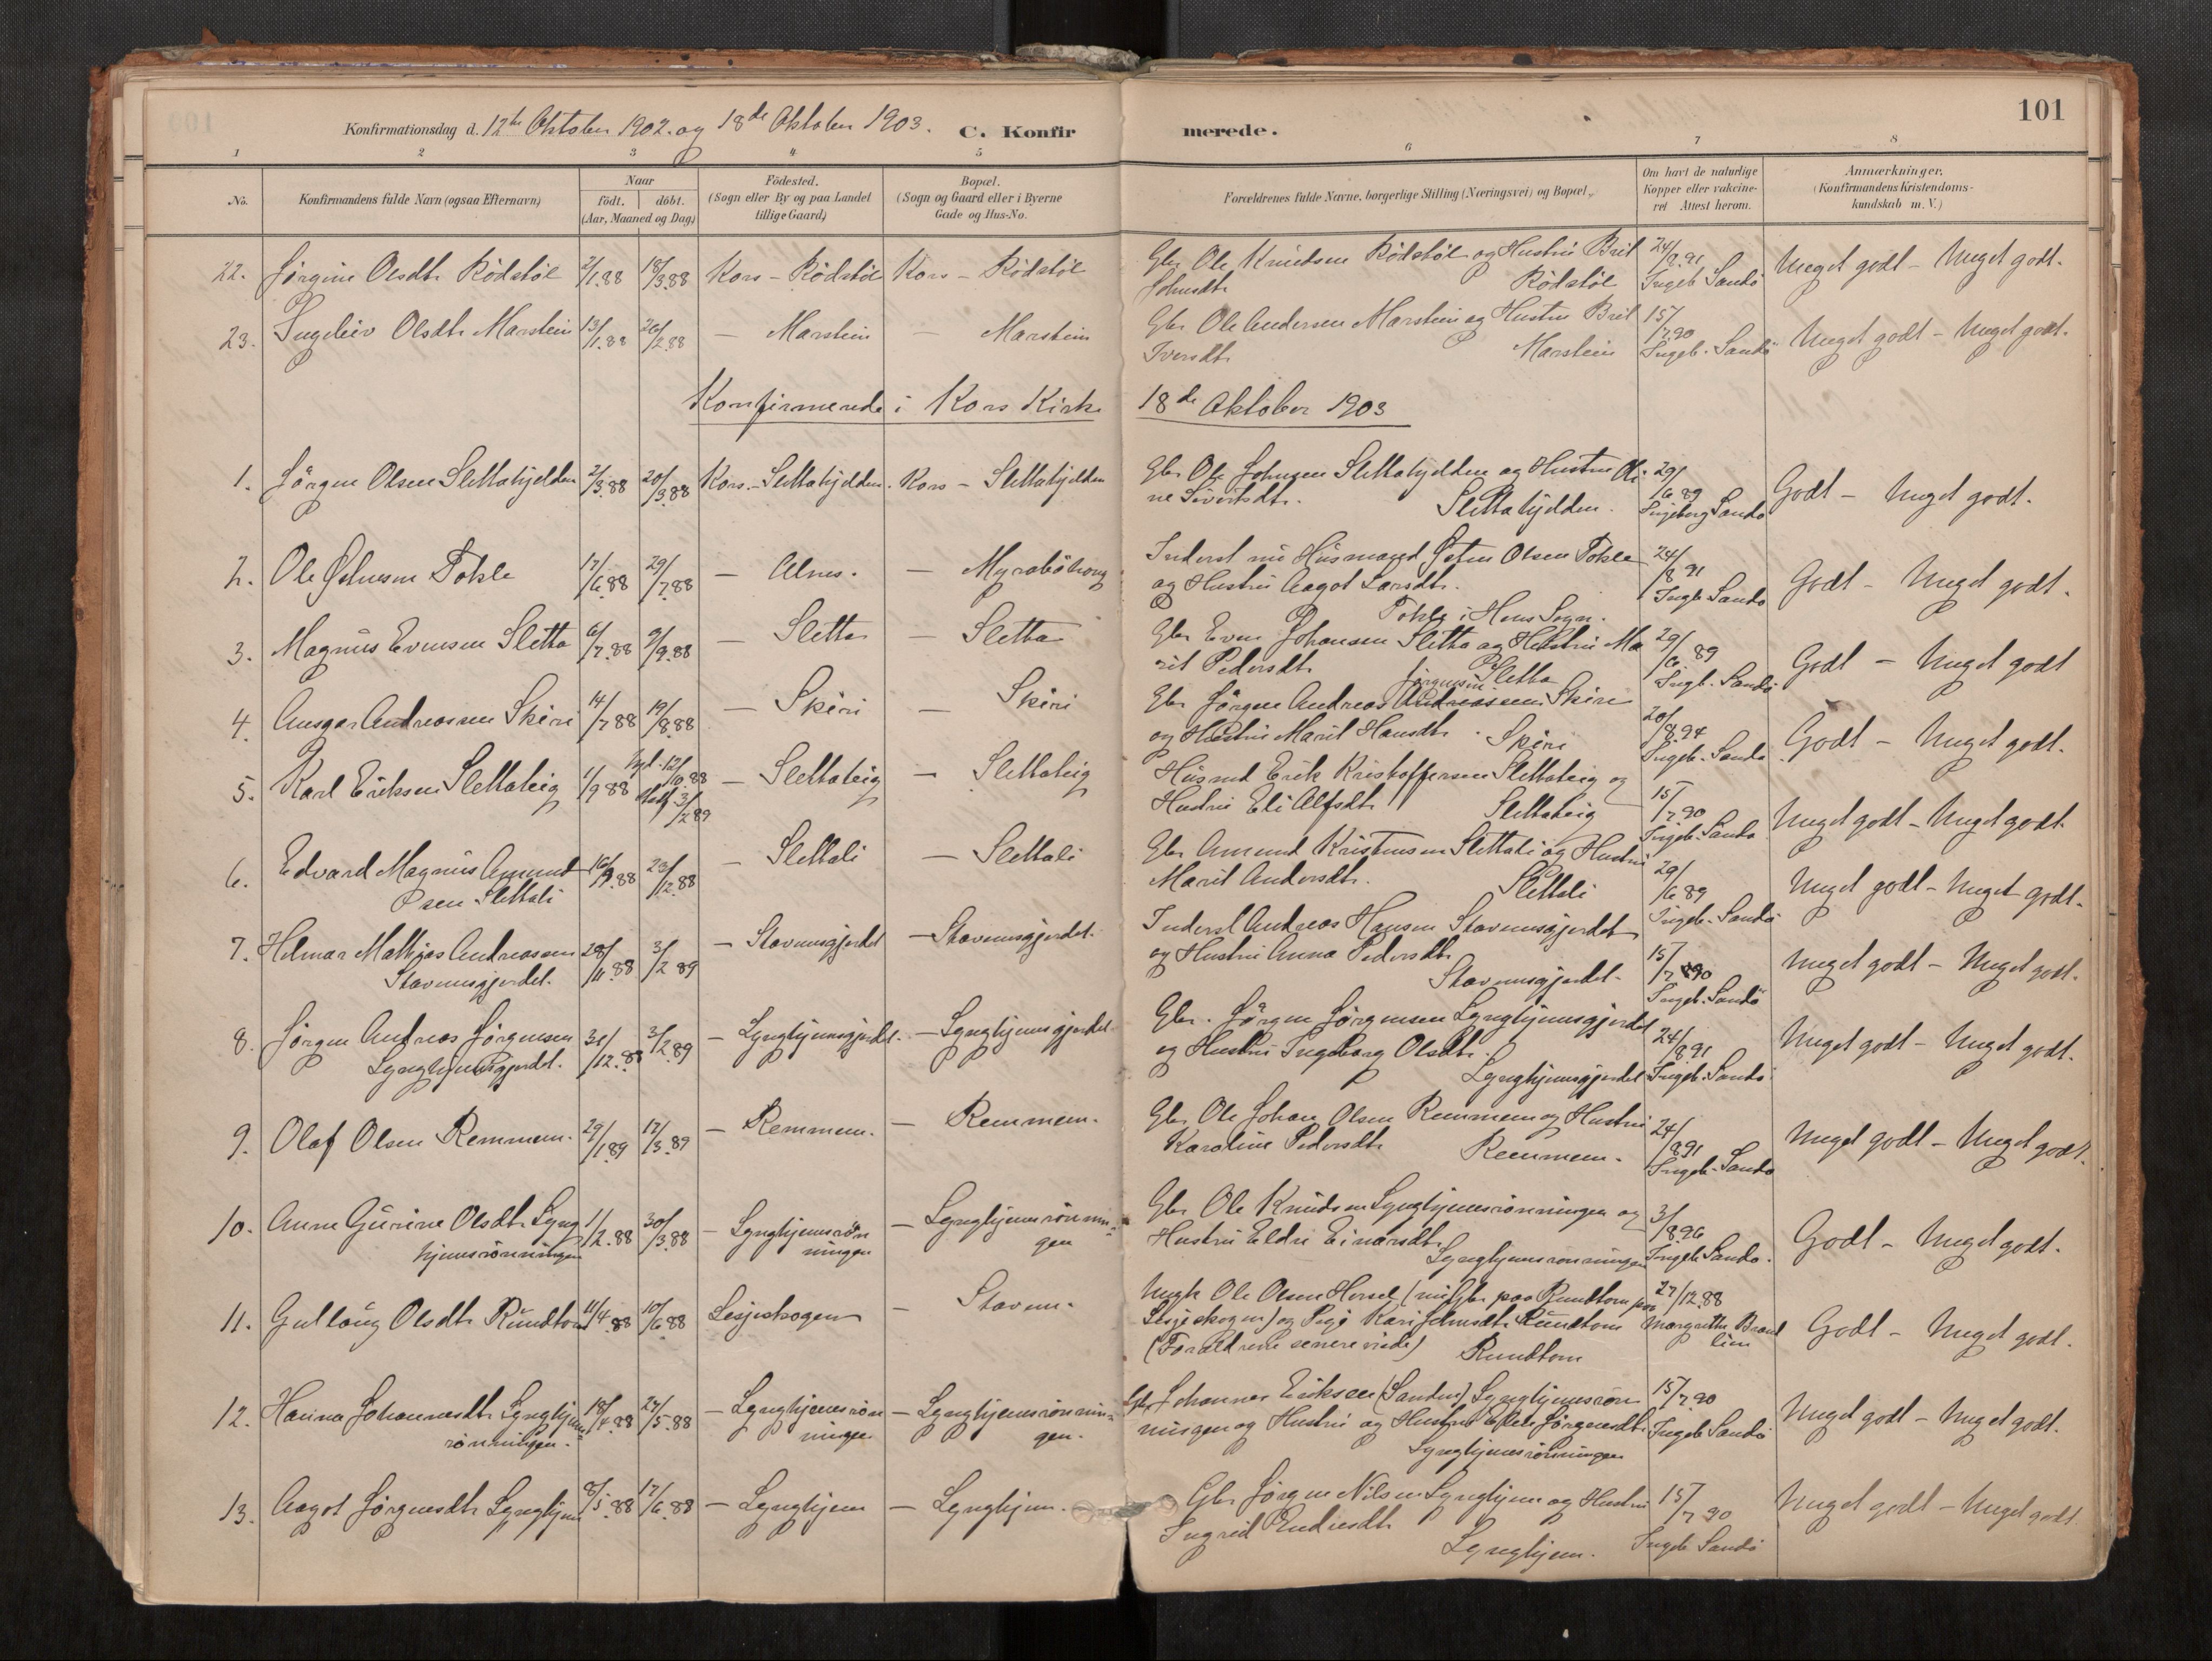 101
Konfirmationsdag d. 12te Oktober 1902. og 18de Oktober 1903. C. Konfir merede.
1 2 3 4 5 6 7 8
No. Konfirmandens fulde Navn (ogsaa Efternavn)
Naar
födt. döbt.
(Aar, Maaned og Dag)
Födested.
(Sogn eller By og paa Landet
tillige Gaard)
Bopæl.
(Sogn og Gaard eller i Byerne
Gade og Hus-No.
Forældrenes fulde Navne, borgerlige Stilling (Næringsvei) og Bopæl.
Om havt de naturlige
Kopper eller vakcine-
ret Attest herom.
Anmærkninger.
(Konfirmandens Kristendoms-
kundskab m. V.)
22. Jørgine Olsdtr Rödstöl 2/1.88 18/3.88 Kors - Rödstöl Kors - Rödstöl
Gbr Ole Knudsen Rödstöl og Hustru Brit
Johnsdtr Rödstöl
24/8.91
Ingeb Sandö
Meget godt - Meget godt.
23. Ingeleiv Olsdtr Marstein 13/1.88 26/2.88 — Marstein — Marstein
Gbr Ole Andersen Marstein og Hustru Brit
Iversdtr Marstein
15/7.90
Ingeb. Sandö
Meget godt - Meget godt.
Konfirmerede i Kors Kirke 18de Oktober 1903
1. Jörgen Olsen Slettahjelden 2/3.88 20/3.88 Kors. - Slettahjelden. Kors - Slettahjelden
Gbr Ole Johnsen Slettahjelden og Hustru Oli-
ne Sivertsdtr. Slettahjelden.
29/6 89
Ingeborg Sandö
Godt - Meget godt.
2. Ole Østensen Tokle 17/6.88 29/7.88 — Alnes. — Myraböhaug
Inderst nu Husmand Østen Olsen Tokle
og Hustru Aagot Larsdtr.
Tokle i Hens Sogn.
24/8 91
Ingb Sandö
Godt - Meget godt.
3. Magnus Evensen Sletta 6/7.88 9/9.88 — Sletta — Sletta
Gbr Even Johansen Sletta og Hustru Ma
rit Pedersdtr Sletta
29/6 89
Ingb. Sandö
Godt - Meget godt
4. Ansgar Andreassen Skiri 14/7 88 19/8.88 — Skiri — Skiri
Jørgensen
Gbr Jörgen Andreas Andreassen Skiri
og Hustru Marit Hansdtr. Skiri
20/8.94
Ingeb. Sandö
Godt - Meget godt.
5. Karl Eriksen Slettateig 1/9 88 12/10.88 3/2 89 — Slettateig — Slettateig
Husmd Erik Kristoffersen Slettateig og
Hustru Eli Alfsdtr Slettateig
15/7 90
Ingeb. Sandö
Meget godt - Meget godt.
6. Edvard Magnus Amund
sen Slettali
16/9.88 23/12.88 — Slettali — Slettali
Gbr Amund Kristensen Slettali og Hustru
Marit Andersdtr. Slettali
29/6 89
Ingeb. Sandö
Meget godt - Meget godt.
7. Hilmar Mathias Andreassen
Stavemsgjerdet.
28/11.88 3/2 89 — Stavemsgjerdet — Stavemsgjerdet.
Inderst Andreas Hansen Stavemsgjerdet
og Hustru Anna Pedersdtr
Stavemsgjerdet.
15/7 90
Ingeb. Sandö
Meget godt - Meget godt.
8. Jörgen Andreas Jørgensen
Lynghjemsgjerdet.
31/12.88 3/2.89 — Lynghjemsgjerdet. — Lynghjemsgjerdet.
Gbr. Jörgen Jörgensen Lynghjemsgjerdet
og Hustru Ingeborg Olsdtr.
Lynghjemsgjerdet
24/8.91
Ingeb. Sandö
Meget godt - Meget godt.
9. Olaf Olsen Remmem. 29/1.89 17/3.89 — Remmem. — Remmem.
Gbr Ole Johan Olsen Remmem og Hustru
Karoline Pedersdtr Remmem.
24/8.91
Ingeb. Sandö
Meget godt - Meget godt.
10. Anne Gurine Olsdtr. Lyng
hjemsrönningen
1/2.88 30/3.88 — Lynghjemsrön
ningen — Lynghjemsrönnin-
gen
Gbr Ole Knudsen Lynghjemsrönningen og
Hustru Eldri Einarsdtr.
Lynghjemsrönningen
3/8.96
Ingeb Sandö.
Godt - Meget godt.
11. Gullaug Olsdtr Rundtom 11/4.88 10/6.88 Lesjeskogen — Stavem.
Ungk Ole Olsen Horsel (nu Gbr paa Rundtom paa
Lesjeskogen) og Pige Kari Johnsdtr Rundtom
(Forældrene senere viede) Rundtom
27/12.88
Margrethe Brand
lien
Godt - Meget godt.
12. Hanna Johannesdtr Lynghjems
rönningen.
18/4.88 27/5.88 — Lynghjemsrön
ningen — Lynghjemsrönnin-
gen.
Gbr Johannes Eriksen (Sandnes) Lynghjemsrön
ningen og Hustru og Hustru Jørgensdtr.
Lynghjemsrönningen
15/7.90
Ingeb Sandö
Meget godt - Meget godt.
13. Aagot Jørgensdtr Lynghjem 8/5.88 17/6.88 — Lynghjem — Lynghjem.
Gbr Jørgen Nilsen Lynghjem og Hustru
Ingrid Endresdtr
Lynghjem.
15/7 90
Ingeb Sandö
Meget godt - Meget godt.